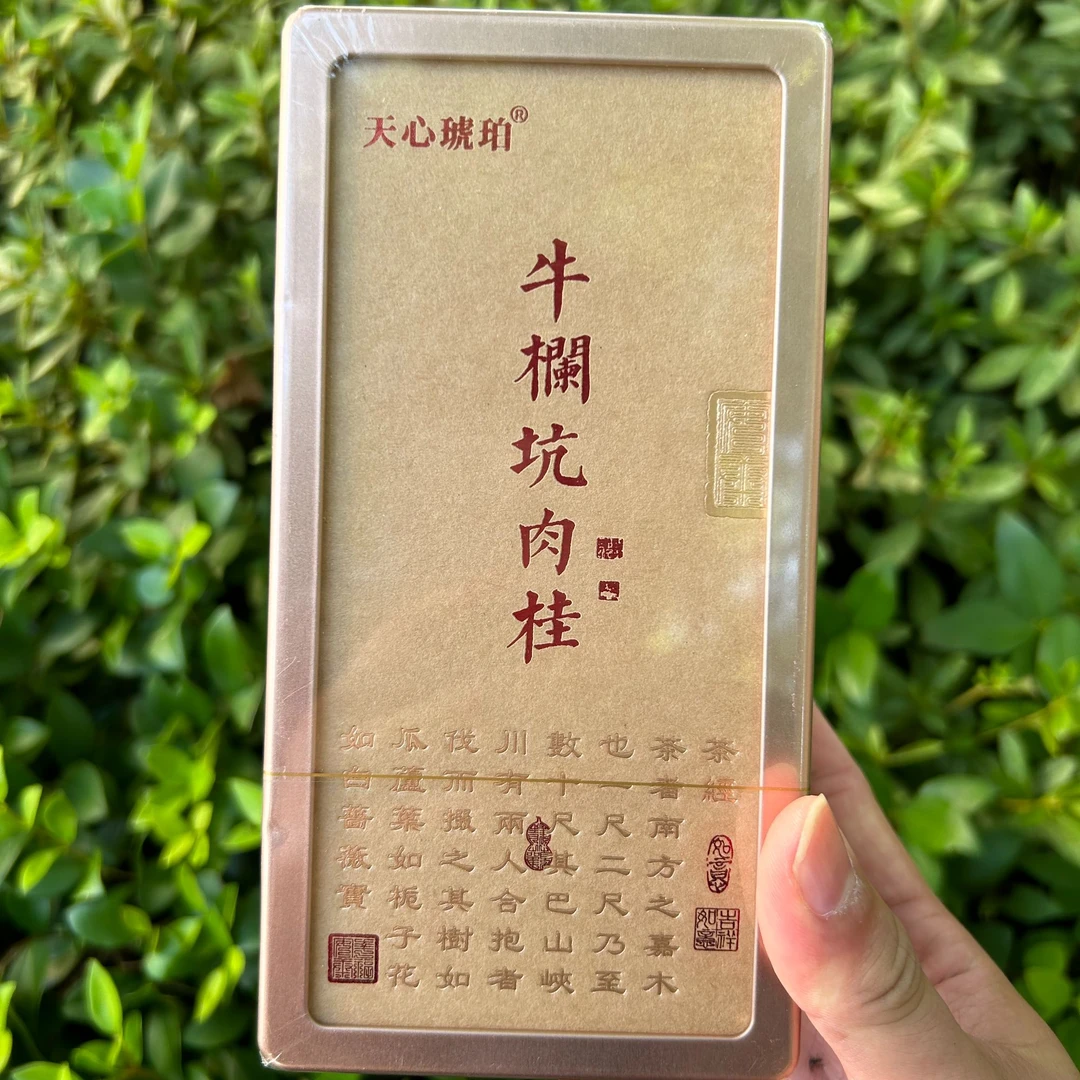 天心琥珀®
牛欄坑肉桂
茶經
茶者南方之嘉木
也一尺二尺乃至
數十尺其巴山峽
川有兩人合抱者
伐而掇之其樹如
瓜蘆葉如梔子花
如白薔薇實
如意
吉祥如意